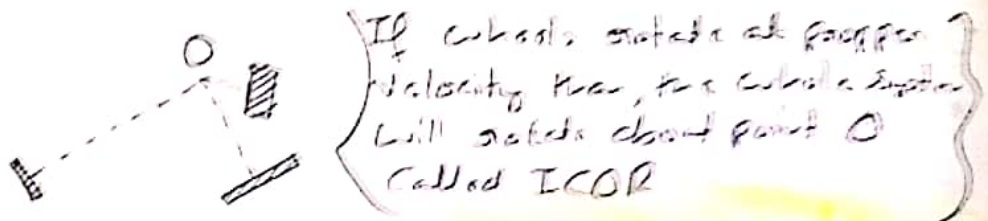 O
If wheels rotate at propper
velocity then, the whole system
will rotate about point O
Called ICOR